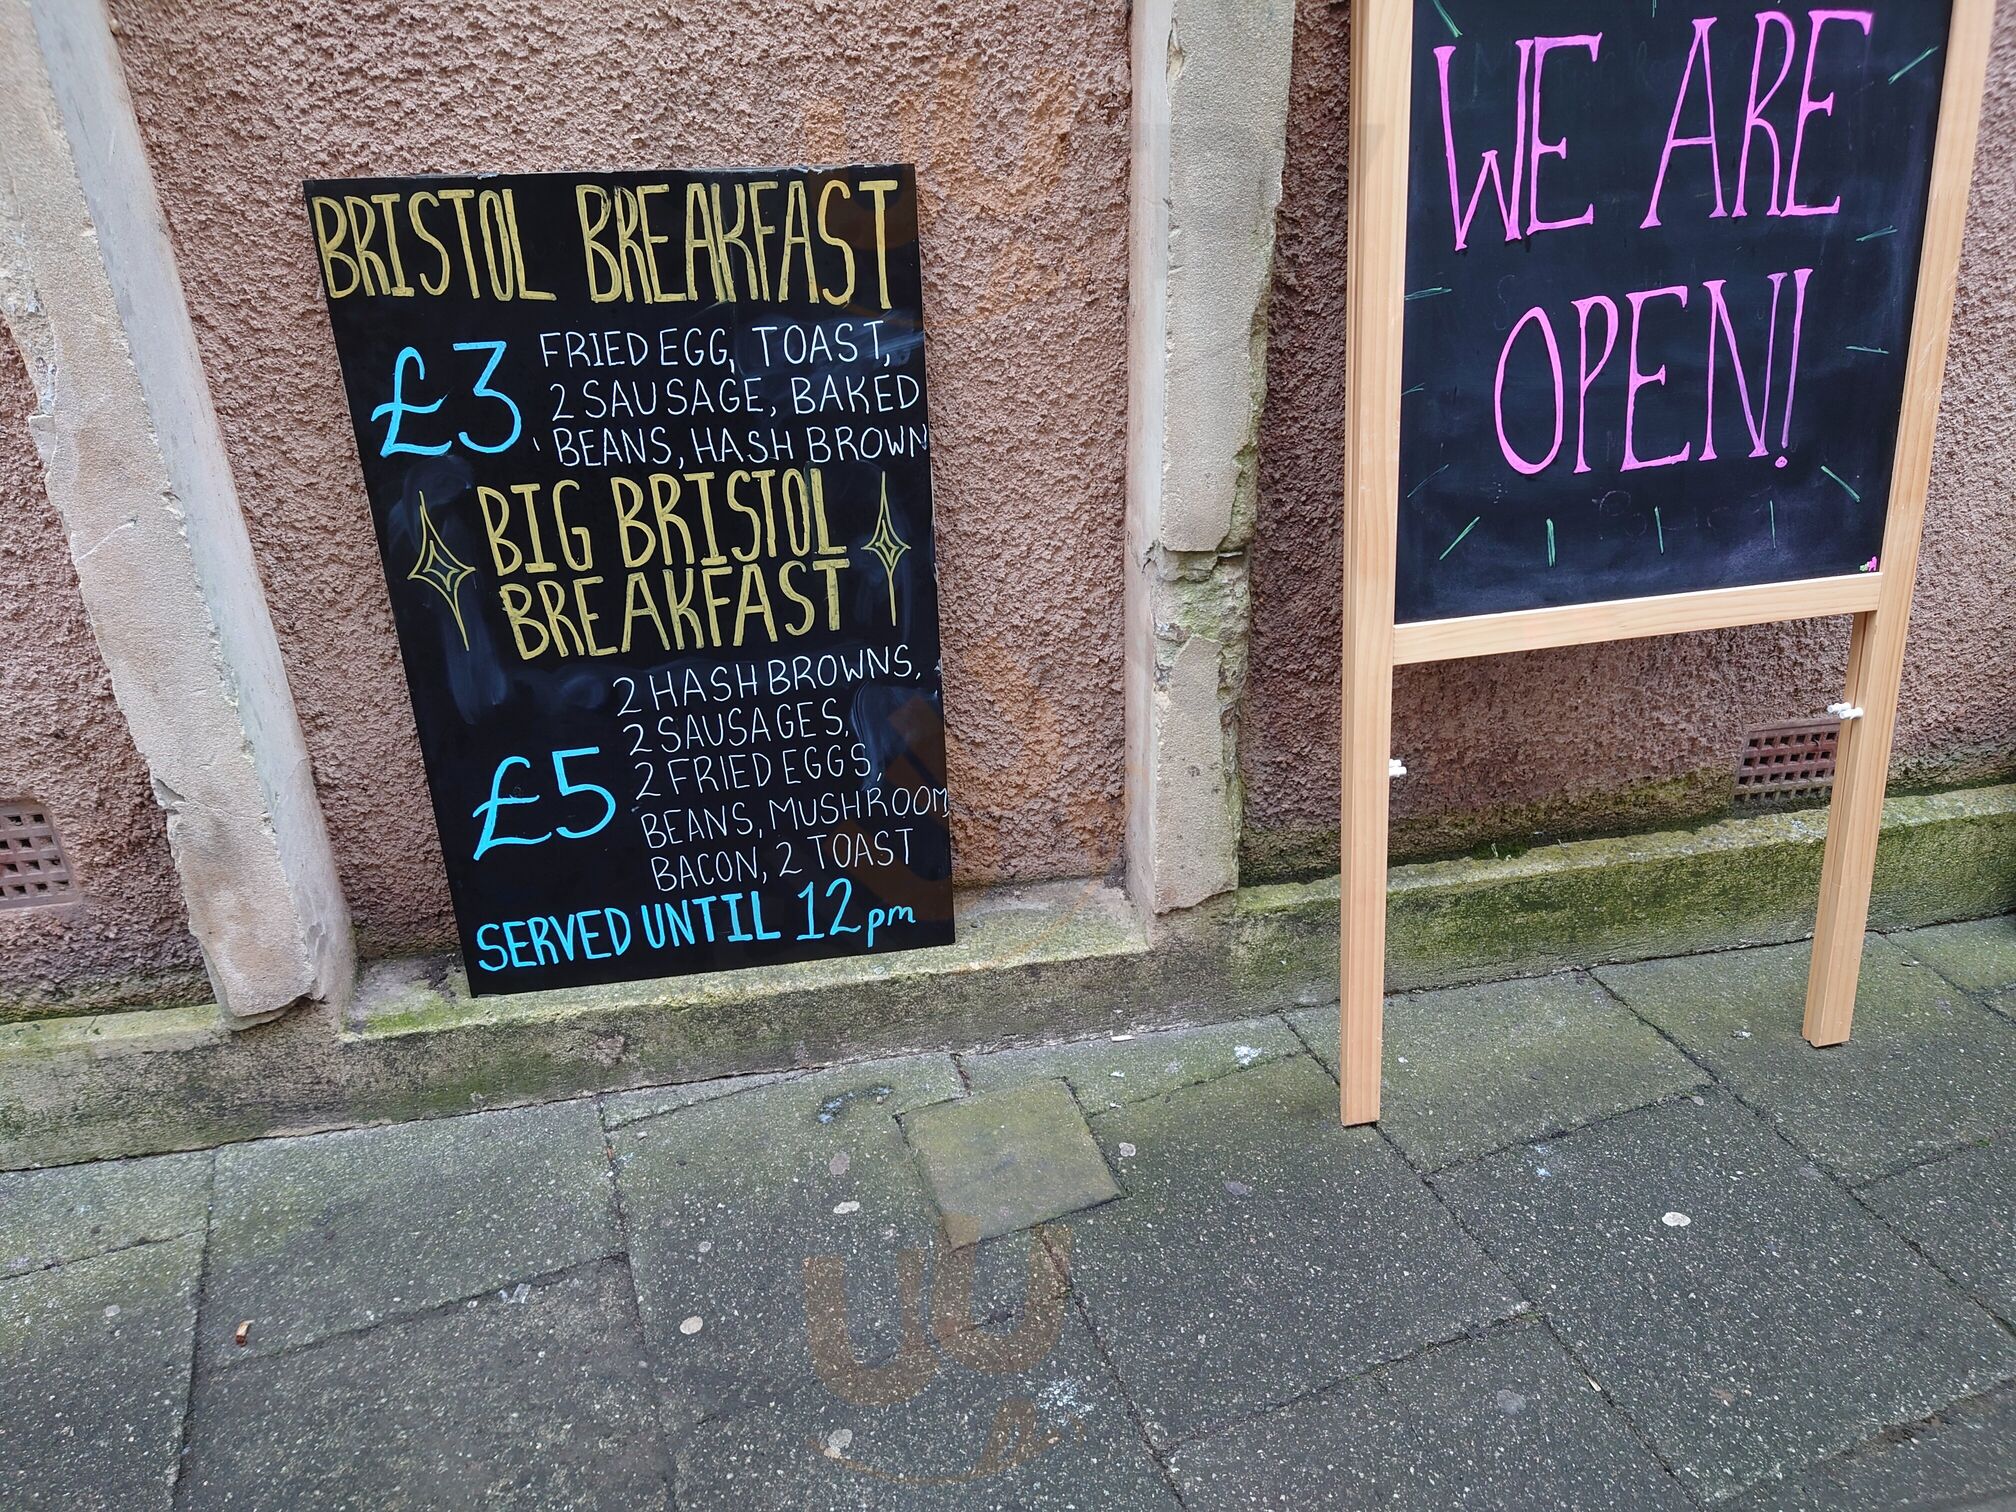 BRISTOL BREAKFAST
£3
FRIED EGG, TOAST,
2 SAUSAGE, BAKED
BEANS, HASH BROWN
BIG BRISTOL
BREAKFAST
£5
2 HASH BROWNS,
2 SAUSAGES,
2 FRIED EGGS,
BEANS, MUSHROOM
BACON, 2 TOAST
SERVED UNTIL 12pm
WE ARE
OPEN!